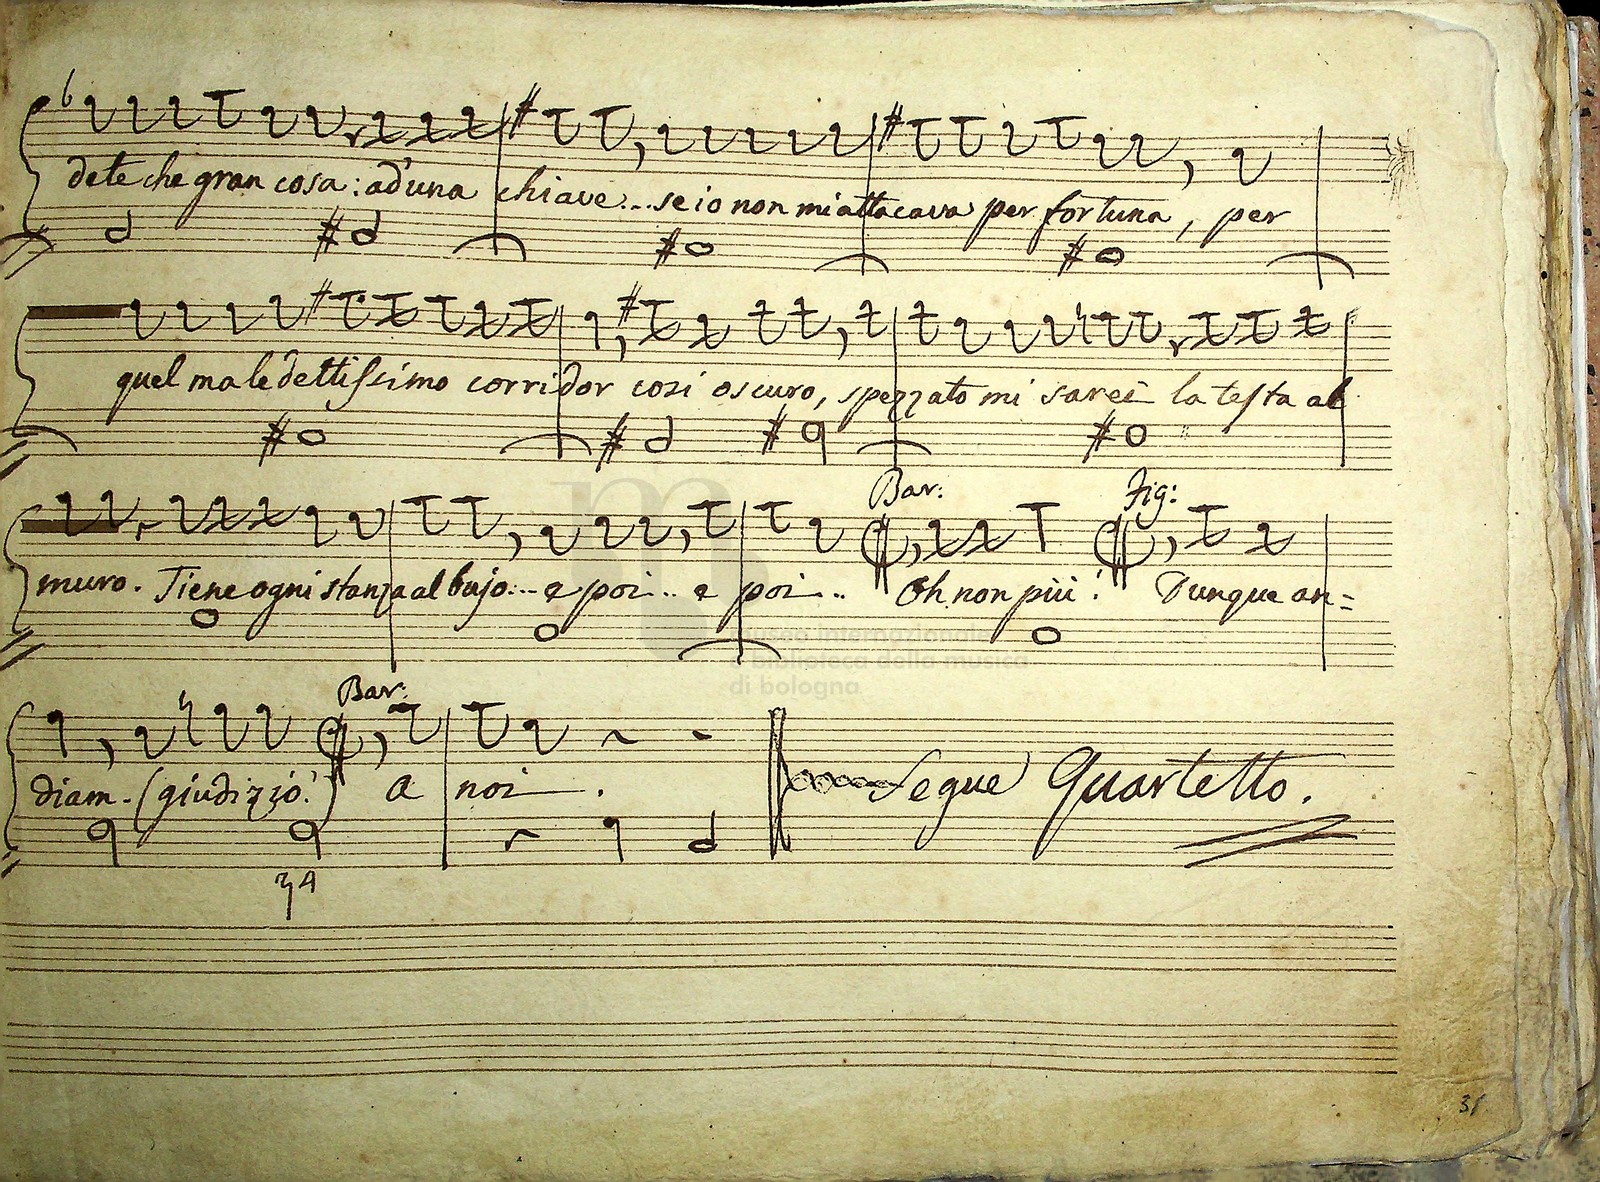 dete che gran cosa: ad'una chiave... se io non mi attacava per fortuna, per
quel maledettissimo corridor così oscuro, spezzato mi sarei la testa al
Bar: Fig:
muro. Tiene ogni stanza al bujo... e poi.. e poi.. Oh non più! Dunque an=
Bar:
diam. (giudizio!) a noi.
Segue Quartetto.
museo internazionale
e biblioteca della musica
di bologna